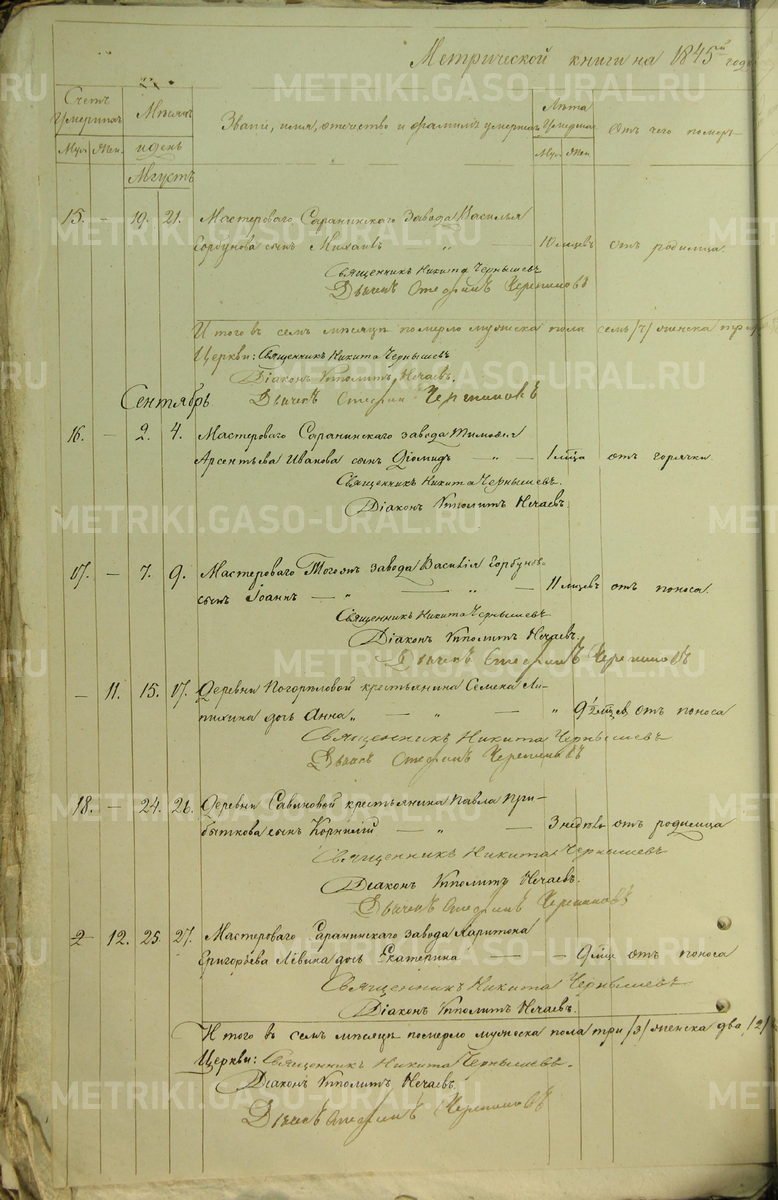 Метрической книги на 1845й годъ
Счетъ умершихъ
Мѣсяцъ и день
Званiе, имя, отчество и фамилiя умершихъ
Лѣта умершаго
Отъ чего померъ
Муж. Жен.
Муж. Жен.
Августъ
15. — 19. 21. Мастероваго Саранинскаго завода Василья
Горбунова сынъ Михаилъ „ — 10 мѣсяцевъ отъ родимца.
Священникъ Никита Чернышевъ
Дьячекъ Стефанъ
Итого въ семъ мѣсяцѣ померло мужеска пола семь /7/ женска три
Церкви: Священникъ Никита Чернышевъ
Дiаконъ Ипполитъ Нечаевъ.
Сентябрь.
Дьячекъ Стефанъ
16. — 2. 4. Мастероваго Саранинскаго завода Тимофея
Арсентьева Иванова сынъ Дiомидъ — „ — 1 мѣсяца отъ горячки
Священникъ Никита Чернышевъ.
Дiаконъ Ипполитъ Нечаевъ.
17. — 7. 9. Мастероваго Тогоже завода Василiя Горбунова
сынъ Iоаннъ — „ — „ — 11 мѣсяцевъ отъ поноса.
Священникъ Никита Чернышевъ
Дiаконъ Ипполитъ Нечаевъ.
Дьячекъ Стефанъ
— 11. 15. 17. Деревни крестьянина Семена
дочь Анна „ — „ — „ 9½ мѣсяцевъ отъ поноса
Священникъ Никита Чернышевъ
Дьячекъ Стефанъ
18. — 24. 26. Деревни Савиновой крестьянина Павла При-
быткова сынъ Корнилiй — „ — 3 недѣль отъ родимца
Священникъ Никита Чернышевъ
Дiаконъ Ипполитъ Нечаевъ.
Дьячекъ Стефанъ
2 — 12. 25. 27. Мастероваго Саранинскаго завода Харитона
Григорьева Лёвина дочь Екатерина — — 9 мѣсяцевъ отъ поноса
Священникъ Никита Чернышевъ
Дiаконъ Ипполитъ Нечаевъ.
Итого въ семъ мѣсяцѣ померло мужеска пола три /3/ женска два /2/
Церкви: Священникъ Никита Чернышевъ.
Дiаконъ Ипполитъ Нечаевъ.
Дьячекъ Стефанъ
METRIKI.GASO-URAL.RU